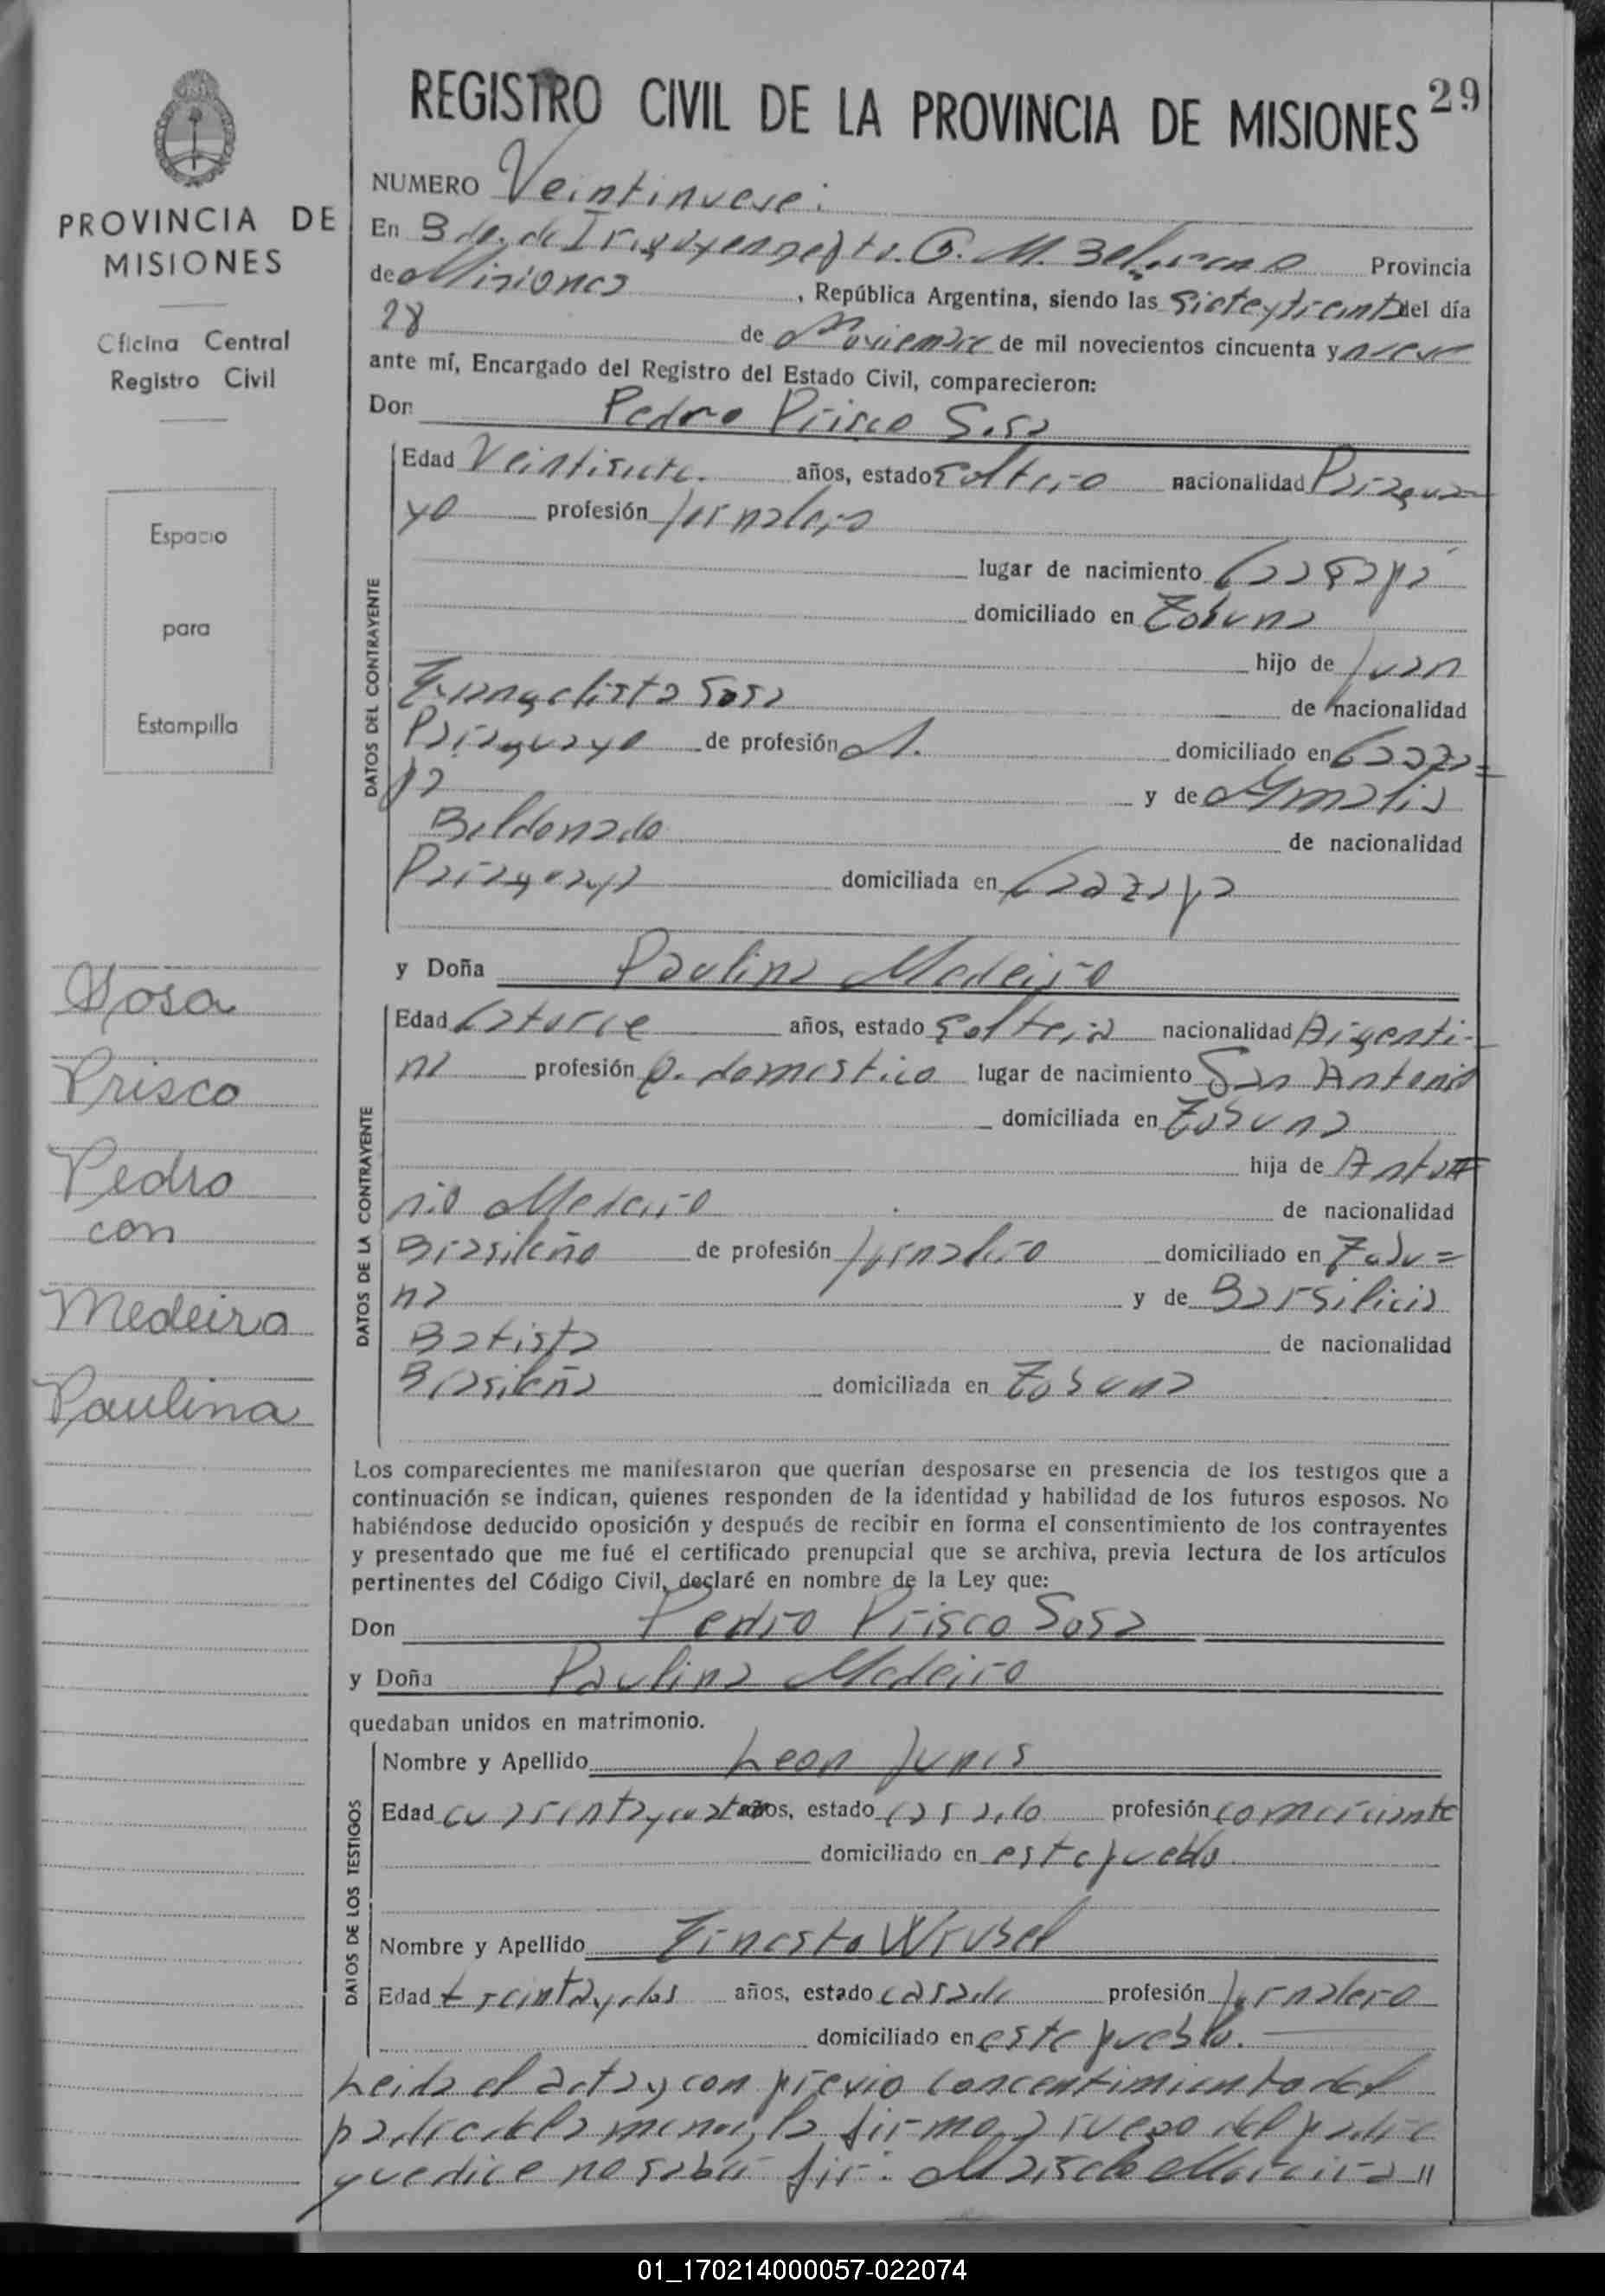 REGISTRO CIVIL DE LA PROVINCIA DE MISIONES 29
PROVINCIA DE
MISIONES
Oficina Central
Registro Civil
Espacio
para
Estampilla
Sosa
Prisco
Pedro
con
Medeira
Paulina
NUMERO Veintinueve:
En Bdo. de Irigoyen Depto. G. M. Belgrano Provincia
de Misiones, República Argentina, siendo las siete y treinta del día
28 de Noviembre de mil novecientos cincuenta y nueve
ante mí, Encargado del Registro del Estado Civil, comparecieron:
Don Pedro Prisco Sosa
DATOS DEL CONTRAYENTE
Edad Veintisiete. años, estado Soltero nacionalidad Paragua-
yo profesión jornalero
lugar de nacimiento Caazapá
domiciliado en Tobuna
hijo de Juan
Evangelista Sosa de nacionalidad
Paraguayo de profesión domiciliado en Caaza=
pa y de
de nacionalidad
Paraguaya domiciliada en Caazapa
y Doña Paulina Medeiro
DATOS DE LA CONTRAYENTE
Edad Catorce años, estado Soltera nacionalidad Argenti-
na profesión Q. domestico lugar de nacimiento San Antonio
domiciliada en Tobuna
hija de Anto=
nio Medeiro de nacionalidad
Brasileño de profesión jornalero domiciliado en Tobu=
na y de Barsilicia
Batista de nacionalidad
Brasileña domiciliada en Tobuna
Los comparecientes me manifestaron que querían desposarse en presencia de los testigos que a
continuación se indican, quienes responden de la identidad y habilidad de los futuros esposos. No
habiéndose deducido oposición y después de recibir en forma el consentimiento de los contrayentes
y presentado que me fué el certificado prenupcial que se archiva, previa lectura de los artículos
pertinentes del Código Civil, declaré en nombre de la Ley que:
Don Pedro Prisco Sosa
y Doña Paulina Medeiro
quedaban unidos en matrimonio.
DATOS DE LOS TESTIGOS
Nombre y Apellido Leon Junes
Edad años, estado casado profesión comerciante
domiciliado en este pueblo
Nombre y Apellido Ernesto Wrubel
Edad treinta y dos años, estado casado profesión jornalero
domiciliado en este pueblo.
Leida el acta y con previo concentimiento del
padre de la menor, la firma a ruego del padre
que dice no saber fir.
01_170214000057-022074